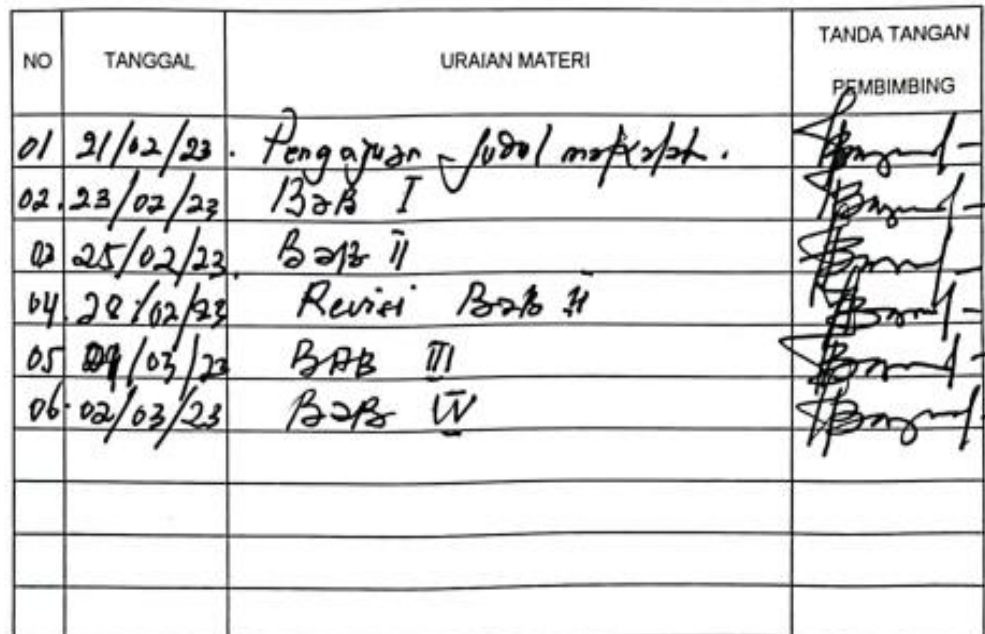 NO TANGGAL URAIAN MATERI TANDA TANGAN PEMBIMBING
01 21/02/23. Pengajuan Judul makalah.
02. 23/02/23 BaB I
03 25/02/23 BaB II
04. 28/02/23 Revisi BaB II
05 01/03/23 BAB III
06. 02/03/23 BaB IV